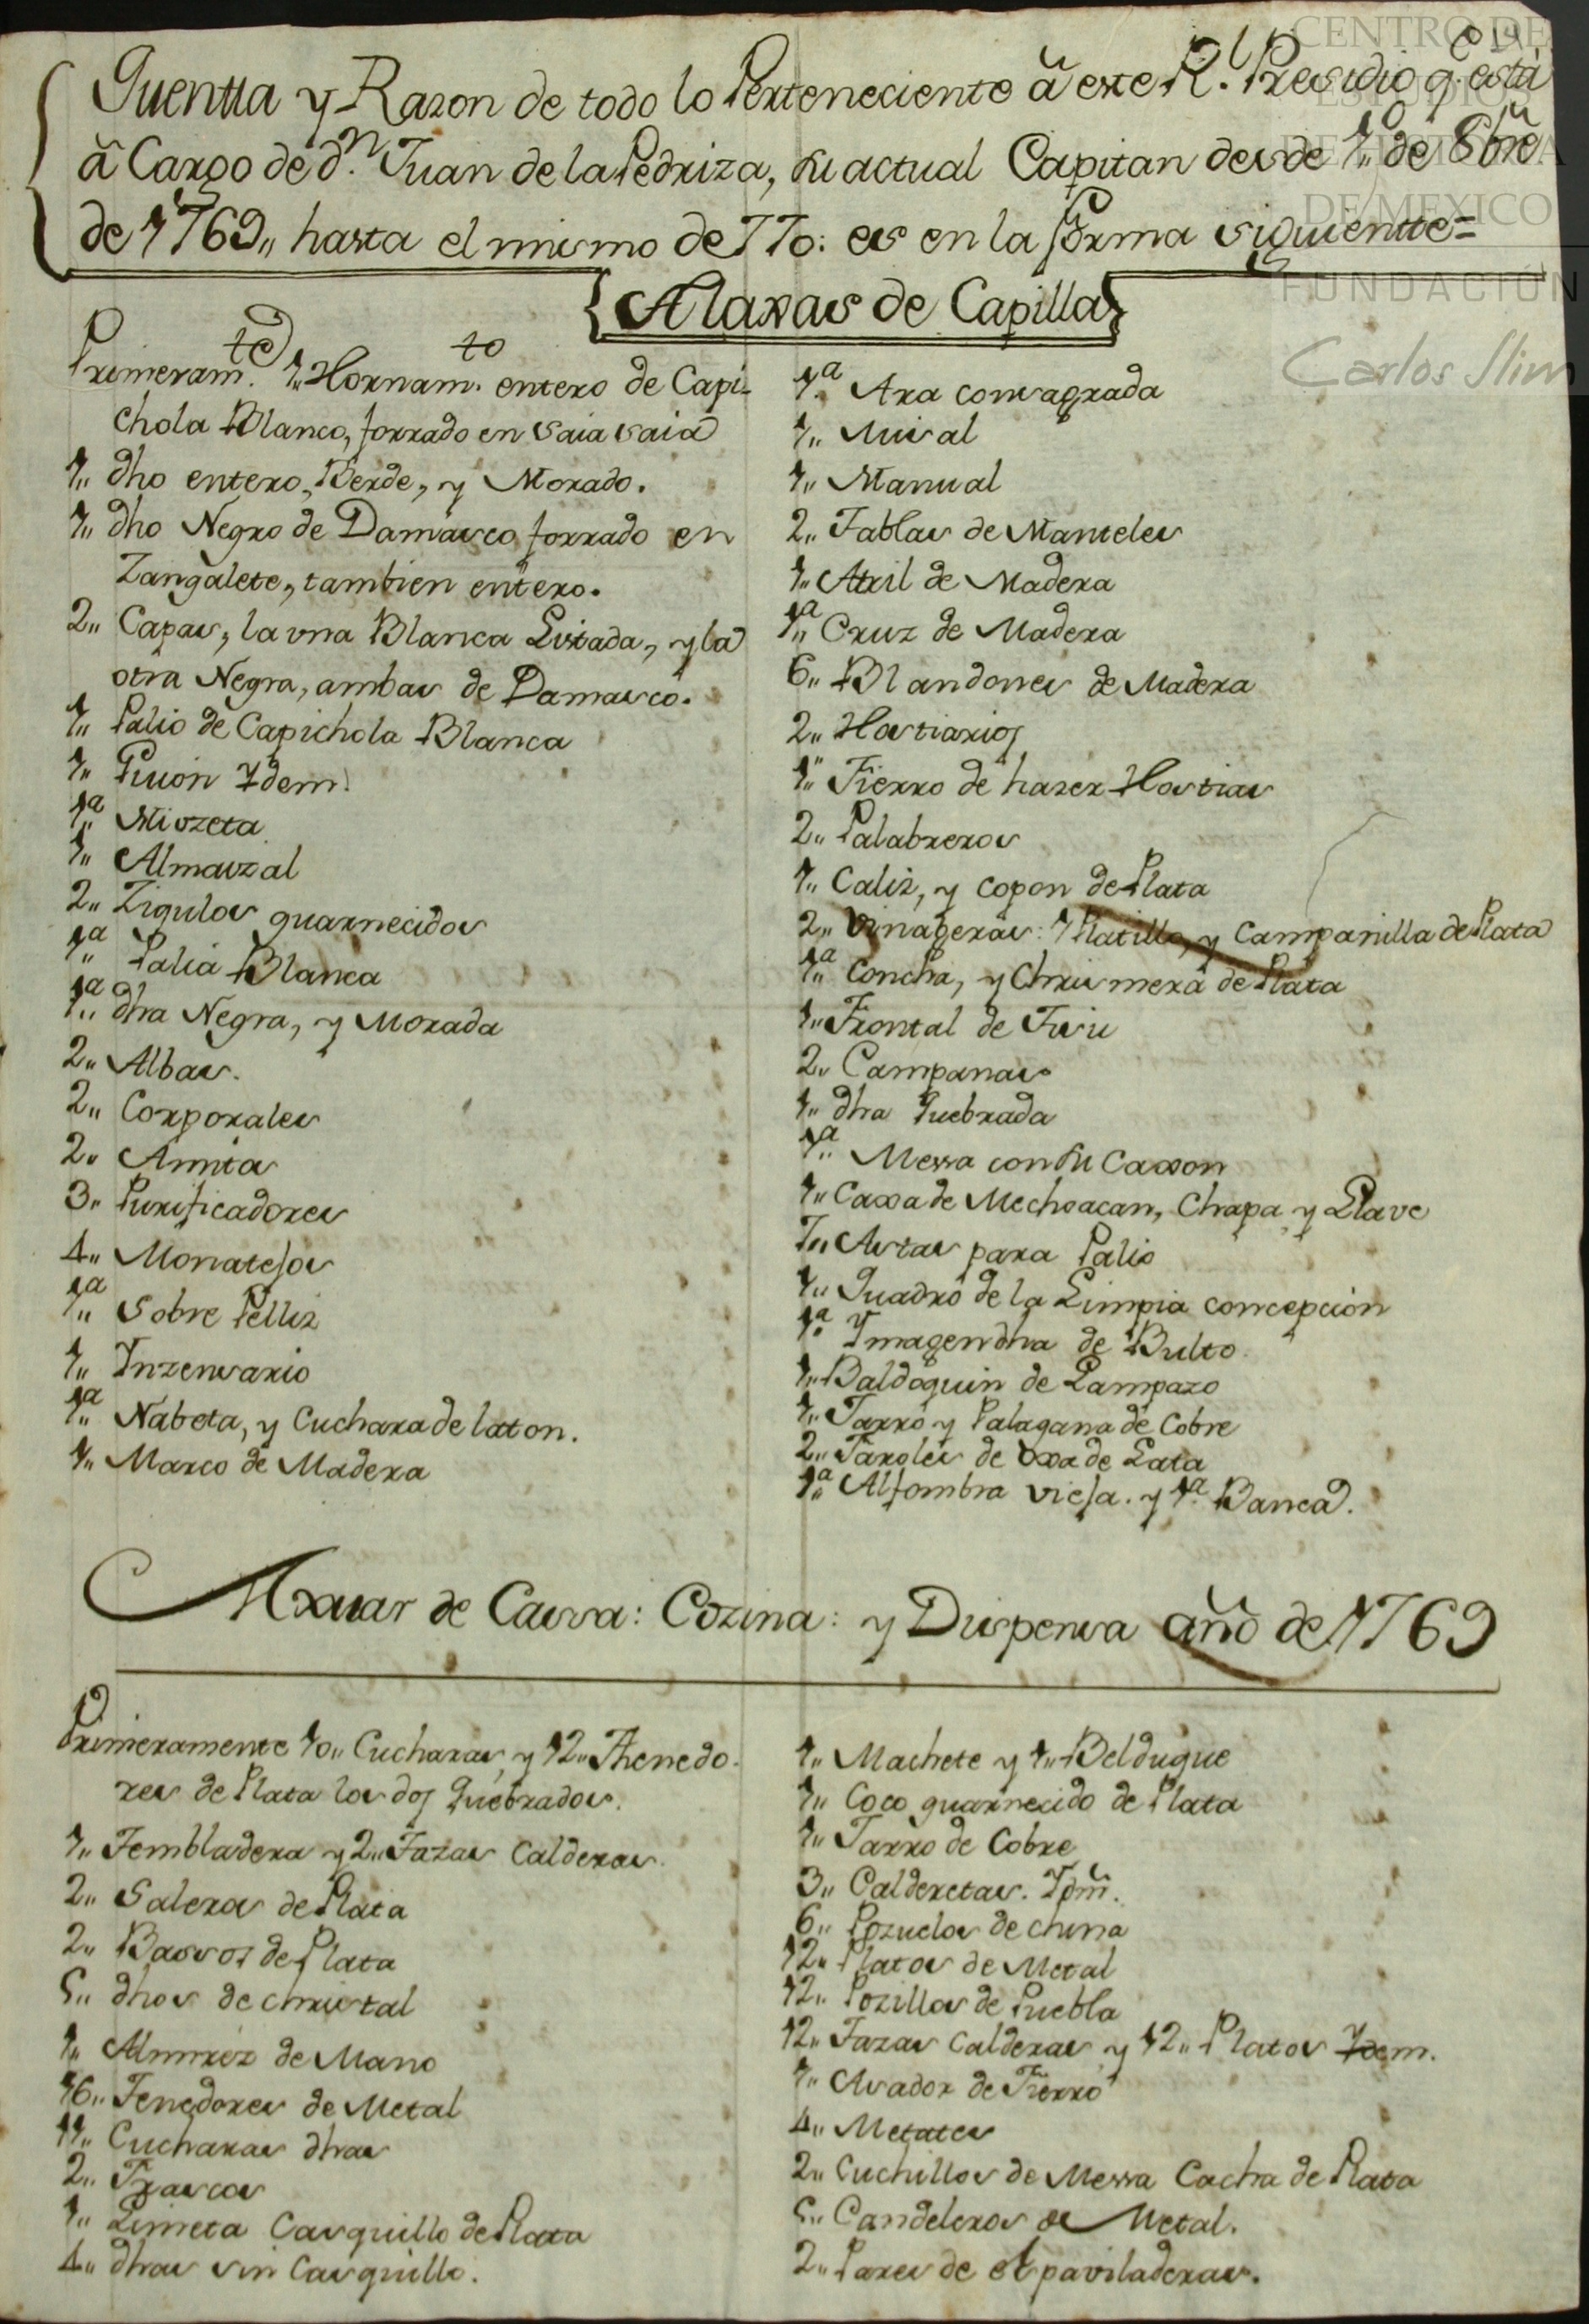 Quentta y Razon de todo lo Perteneciente â este Rl. Presidio q.e està
â Cargo de dn. Juan de la Pedriza, su actual Capitan desde 1.o de 8bre
de 1769,, hasta el mismo de 770: es en la forma siguientte=
Alaxas de Capilla
Primeram.te 1,, Hornam.to entero de Capi-
chola Blanco, forrado en saia saia
1,, dho entero, Berde, y Morado.
1,, dho Negro de Damasco forrado en
Zangalete, tambien entero.
2,, Capas, la vna Blanca Listada, y la
otra Negra, ambas de Damasco.
1,, Palio de Capichola Blanca
1,, Guion Ydem.
1,,a Miszeta
1,, Almaizal
2,, Zigulos guarnecidos
1,,a Palia Blanca
1,,a dha Negra, y Morada
2,, Albas.
2,, Corporales
2,, Amitos
3,, Purificadores
4,, Monatejos
1,,a Sobre Pelliz
1,, Inzensario
1,,a Nabeta, y Cuchara de laton.
1,, Marco de Madera
1.a Ara consagrada
1,, Misal
1,, Manual
2,, Tablas de Manteles
1,, Atril de Madera
1,,a Cruz de Madera
6,, Blandones de Madera
2,, Hostiarios
1,, Fierro de hazer Hostias
2,, Palabreros
1,, Caliz, y copon de Plata
2,, Vinageras: 1 Platillo, y Campanilla de Plata
1,,a Concha, y Chrismera de Plata
1,, Frontal de Tisu
2,, Campanas
1,, dha Quebrada
1,,a Messa con su Caxon
1,, Caxa de Mechoacan, Chapa y Llave
7,, Astas para Palio
1,, Quadro de la Limpia concepcion
1.a Ymagen dha de Bulto.
1,, Baldoquin de Lampazo
1,, Jarro y Palagana de Cobre
2,, Faroles de oxa de Lata
1,,a Alfombra vieja. y 1.a Banca.
Axuar de Cassa: Cozina: y Dispensa año de 1769
Primeramente 10,, Cucharas, y 12,, Thenedo-
res de Plata los dos Quebrados.
1,, Tembladera y 2,, Tazas Calderas.
2,, Saleros de Plata
2,, Bassos de Plata
5,, dhos de christal
1,, Almirez de Mano
16,, Tenedores de Metal
11,, Cucharas dhas
2,, Frascos
1,, Limeta Casquillo de Plata
4,, dhas sin Casquillo.
1,, Machete y 1,, Belduque
1,, Coco guarnecido de Plata
1,, Jarro de Cobre
3,, Calderetas. Ydm.
6,, Pozuelos de china
12,, Platos de Metal
12,, Pozillos de Puebla
12,, Tazas Calderas y 12,, Platos Ydem.
1,, Asador de Fierro
4,, Metates
2,, Cuchillos de Messa Cacha de Plata
5,, Candeleros de Metal.
2,, Pares de espaviladeras.
CENTRO DE
ESTUDIOS
DE HISTORIA
DE MEXICO
FUNDACIÓN
Carlos Slim